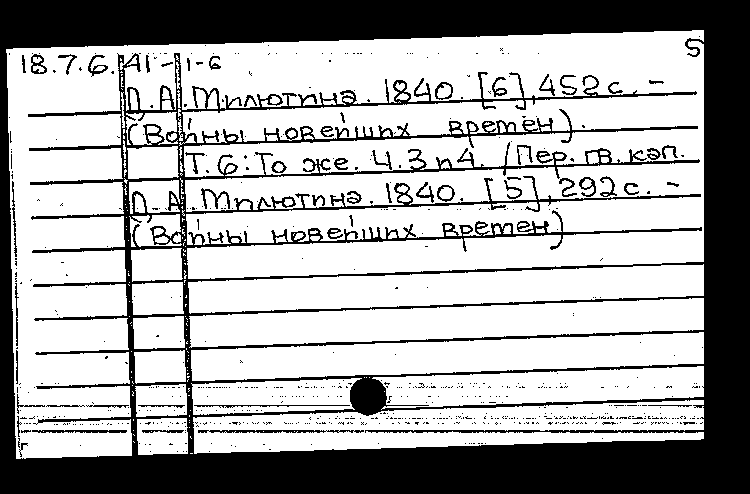 18.7.6.41-1-6
5
Д.А.Милютина. 1840. [6], 452 с. –
(Войны новейших времен).
Т.6: То же. Ч.3 и 4. /Пер. гв. кап.
Д.А.Милютина. 1840. [5], 292 с. –
(Войны новейших времен)